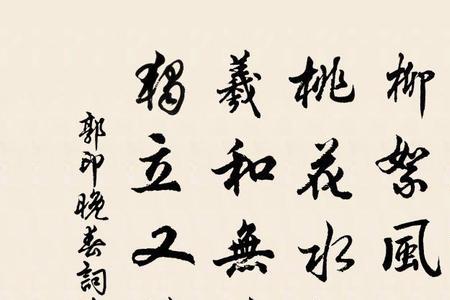 柳絮風
桃花水
羲和無
獨立又
郭印晚春詞